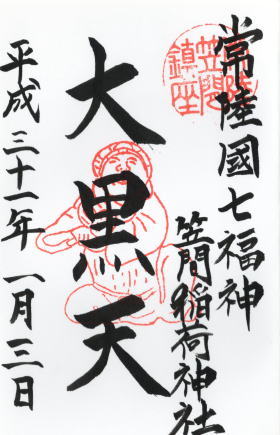 常陸國七福神
笠間
鎮座
笠間稲荷神社
大黒天
平成三十一年一月三日